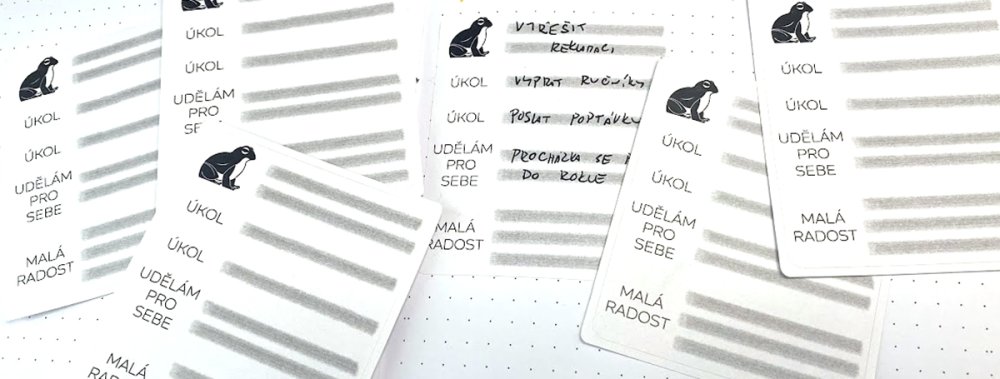 ÚKOL
ÚKOL
UDĚLÁM
PRO
SEBE
MALÁ
RADOST
ÚKOL
ÚKOL
UDĚLÁM
PRO
SE
ÚKOL
ÚKOL
UDĚLÁM
PRO
SEBE
MALÁ
RADOST
VYŘEŠIT
REKLAMACI
ÚKOL VYPRAT RUČNÍKY
ÚKOL POSLAT POPTÁVKU
UDĚLÁM PROCHÁZKA SE
PRO DO
SEBE
MALÁ
RADOST
ÚKOL
ÚKOL
UDĚLÁM
PRO
SEBE
MALÁ
RADOST
ÚKOL
ÚKOL
UDĚLÁM
PRO
SEBE
MALÁ
RADOST